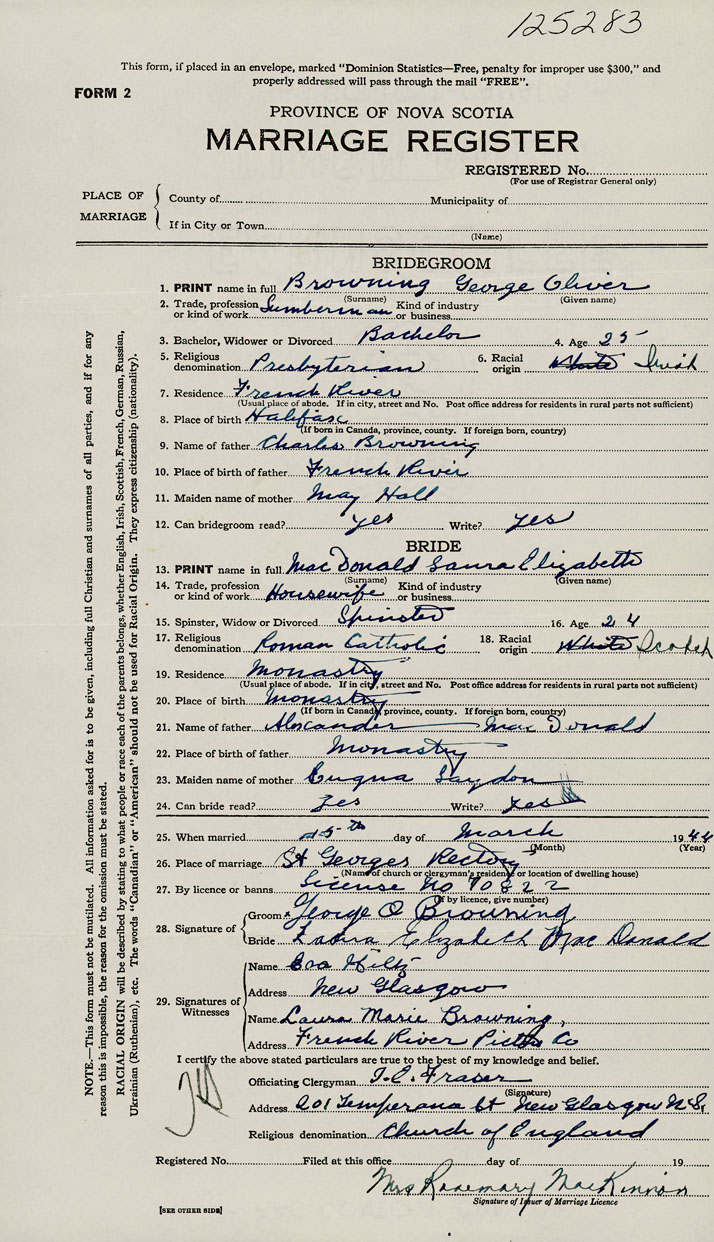 125283
This form, if placed in an envelope, marked "Dominion Statistics—Free, penalty for improper use $300," and
properly addressed will pass through the mail "FREE".
FORM 2
PROVINCE OF NOVA SCOTIA
MARRIAGE REGISTER
REGISTERED No.
(For use of Registrar General only)
PLACE OF MARRIAGE
County of Municipality of
If in City or Town
(Name)
BRIDEGROOM
1. PRINT name in full Browning George Oliver
(Surname) (Given name)
2. Trade, profession or kind of work Lumberman Kind of industry or business
3. Bachelor, Widower or Divorced Bachelor 4. Age 25
5. Religious denomination Presbyterian 6. Racial origin White Irish
7. Residence French River
(Usual place of abode. If in city, street and No. Post office address for residents in rural parts not sufficient)
8. Place of birth Halifax
(If born in Canada, province, county. If foreign born, country)
9. Name of father Charles Browning
10. Place of birth of father French River
11. Maiden name of mother May Hall
12. Can bridegroom read? yes Write? yes
BRIDE
13. PRINT name in full Mac Donald Laura Elizabeth
(Surname) (Given name)
14. Trade, profession or kind of work Housewife Kind of industry or business
15. Spinster, Widow or Divorced Spinster 16. Age 24
17. Religious denomination Roman Catholic 18. Racial origin White Scotch
19. Residence Monastry
(Usual place of abode. If in city, street and No. Post office address for residents in rural parts not sufficient)
20. Place of birth Monastry
(If born in Canada, province, county. If foreign born, country)
21. Name of father Alexander Mac Donald
22. Place of birth of father Monastry
23. Maiden name of mother
24. Can bride read? Yes Write? Yes
25. When married 25th day of March 1944
(Month) (Year)
26. Place of marriage St Georges Rectory
(Name of church or clergyman's residence or location of dwelling house)
27. By licence or banns License No 70822
(If by licence, give number)
28. Signature of Groom George O Browning
Bride Laura Elizabeth Mac Donald
29. Signatures of Witnesses Name Eva Hiltz
Address New Glasgow
Name Laura Marie Browning,
Address French River Pictou Co
I certify the above stated particulars are true to the best of my knowledge and belief.
Officiating Clergyman Fraser
(Signature)
Address 201 Temperance St New Glasgow N.S.
Religious denomination Church of England
Registered No. Filed at this office day of 19
Mrs Rosemary MacKinnon
Signature of Issuer of Marriage Licence
[SEE OTHER SIDE]
NOTE.—This form must not be mutilated. All information asked for is to be given, including full Christian and surnames of all parties, and if for any
reason this is impossible, the reason for the omission must be stated.
RACIAL ORIGIN will be described by stating to what people or race each of the parents belongs, whether English, Irish, Scottish, French, German, Russian,
Ukrainian (Ruthenian), etc. The words "Canadian" or "American" should not be used for Racial Origin. They express citizenship (nationality).